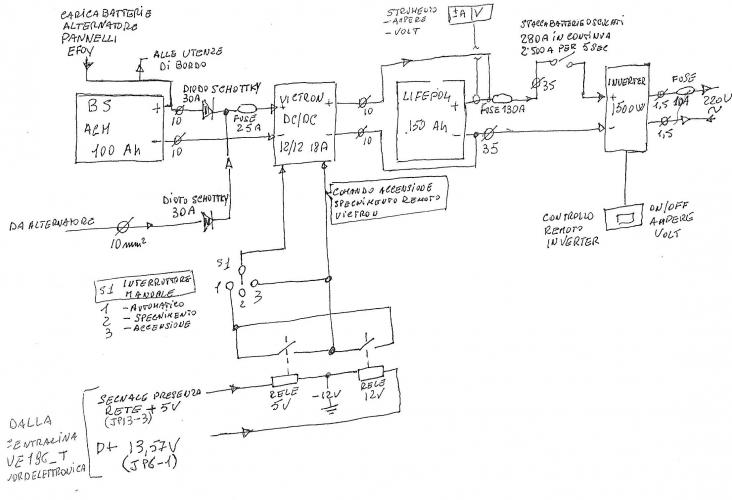 CARICABATTERIE
ALTERNATORE
PANNELLI
EFOY
ALLE UTENZE
DI BORDO
BS
AGM
100 Ah
+
-
10
10
DIODO SCHOTTKY
30A
FUSE
25A
VICTRON
DC/DC
12/12 18A
+
-
+
-
10
10
STRUMENTO
-AMPERE
-VOLT
±A V
LIFEPO4
150 Ah
+
-
FUSE 130A
35
35
STACCABATTERIE
280A IN CONTINUA
2500A PER 5 SEC
INVERTER
1500W
+
-
1,5
1,5
FUSE
10A
220V
~
DA ALTERNATORE
10mm²
DIODO SCHOTTKY
30A
COMANDO ACCENSIONE
SPEGNIMENTO REMOTO
VICTRON
CONTROLLO
REMOTO
INVERTER
ON/OFF
AMPERE
VOLT
S1 INTERRUTTORE
MANUALE
1 -AUTOMATICO
2 -SPEGNIMENTO
3 -ACCENSIONE
S1
1
2
3
DALLA
CENTRALINA
NE186_T
NORDELETTRONICA
SEGNALE PRESENZA
RETE +5V
(JP13-3)
D+ 13,57V
(JP6-1)
RELE
5V
-12V
RELE
12V